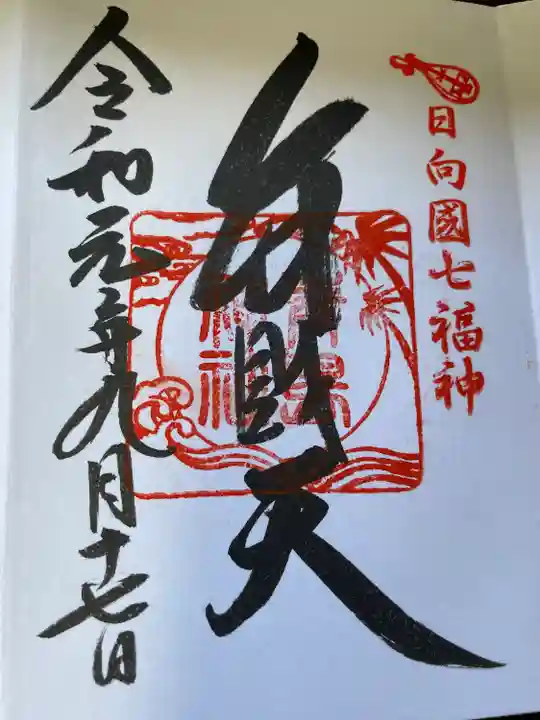 日向國七福神
弁財天
青島
神社
令和元年九月十七日